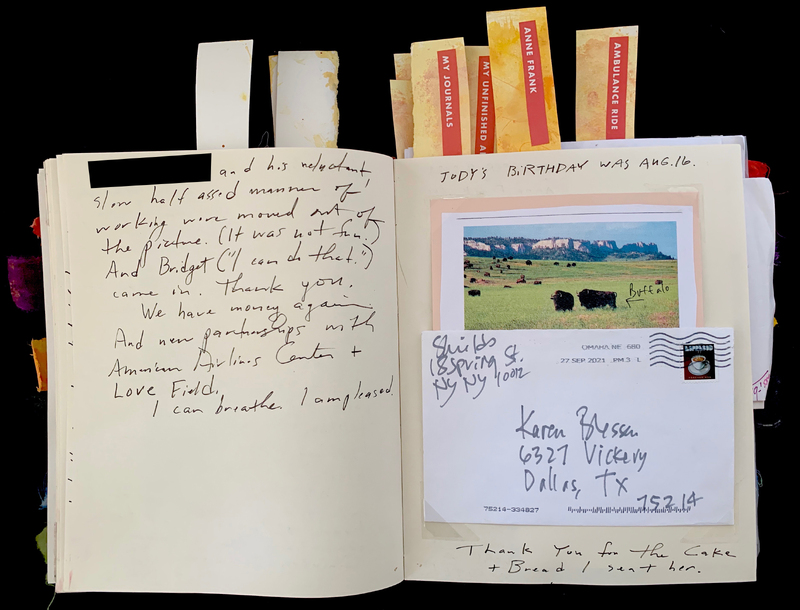 MY JOURNALS
MY UNFINISHED A
ANNE FRANK
AMBULANCE RIDE
and his reluctant,
slow half assed manner of
working were moved out of
the picture. (It was not fun.)
And Bridget ("I can do that.")
came in. Thank you.
We have money again
And new partnerships with
American Airlines Center +
Love Field.
I can breathe. I am pleased.
JUDY'S BIRTHDAY WAS AUG.16.
Buffalo
Shields
18 Spring St.
Ny Ny 10012
OMAHA NE 680
27 SEP 2021 PM 3 L
Karen Blessen
6327 Vickery
Dallas, TX
75214
75214-334827
Thank You for the Cake
+ Bread I sent her.